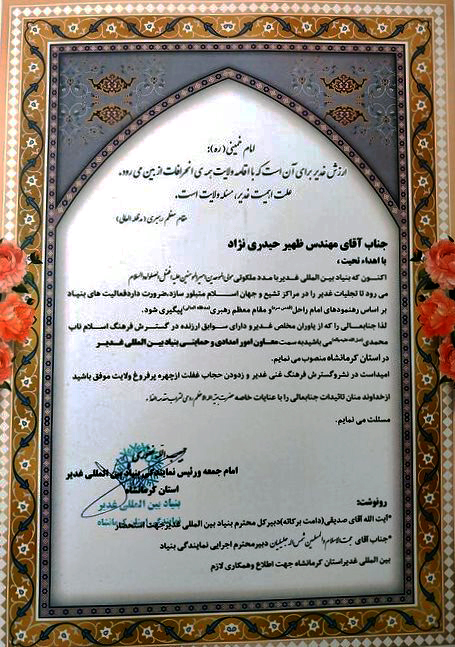 امام خمینی (ره):
ارزش غدیر برای آن است که با اقامه ولایت همه ی انحرافات از بین می رود.
علت اهمیت غدیر، مسئله ولایت است.
مقام معظم رهبری (مدظله العالی)
جناب آقای مهندس ظهیر حیدری نژاد
با اهداء تحیت ،
اکنون که بنیاد بین المللی غدیر با مدد ملکوتی مولی الموحدین امیرالمومنین علیه افضل الصلوة والسلام
می رود تا تجلیات غدیر را در مراکز تشیع و جهان اسلام متبلور سازد،ضرورت دارد فعالیت های بنیاد
بر اساس رهنمودهای امام راحل و مقام معظم رهبری پیگیری شود.
لذا جنابعالی را که از یاوران مخلص غدیر و دارای سوابق ارزنده در گسترش فرهنگ اسلام ناب
محمدی می باشید به سمت معاون امور امدادی و حمایتی بنیاد بین المللی غدیر
در استان کرمانشاه منصوب می نمایم.
امیداست در نشر و گسترش فرهنگ غنی غدیر و زدودن حجاب غفلت از چهره پرفروغ ولایت موفق باشید
از خداوند منان تاییدات جنابعالی را با عنایات خاصه حضرت بقیة الله الاعظم روحی
مسئلت می نمایم.
امام جمعه و رئیس نمایندگی بنیاد بین المللی غدیر
استان کرمانشاه
بنیاد بین المللی غدیر
نمایندگی استان کرمانشاه
رونوشت:
*آیت الله آقای صدیقی(دامت برکاته)دبیر کل محترم بنیاد بین المللی غدیر جهت استحضار
*جناب آقای حجت الاسلام والمسلمین شمس الله جلیلیان دبیر محترم اجرایی نمایندگی بنیاد
بین المللی غدیر استان کرمانشاه جهت اطلاع و همکاری لازم